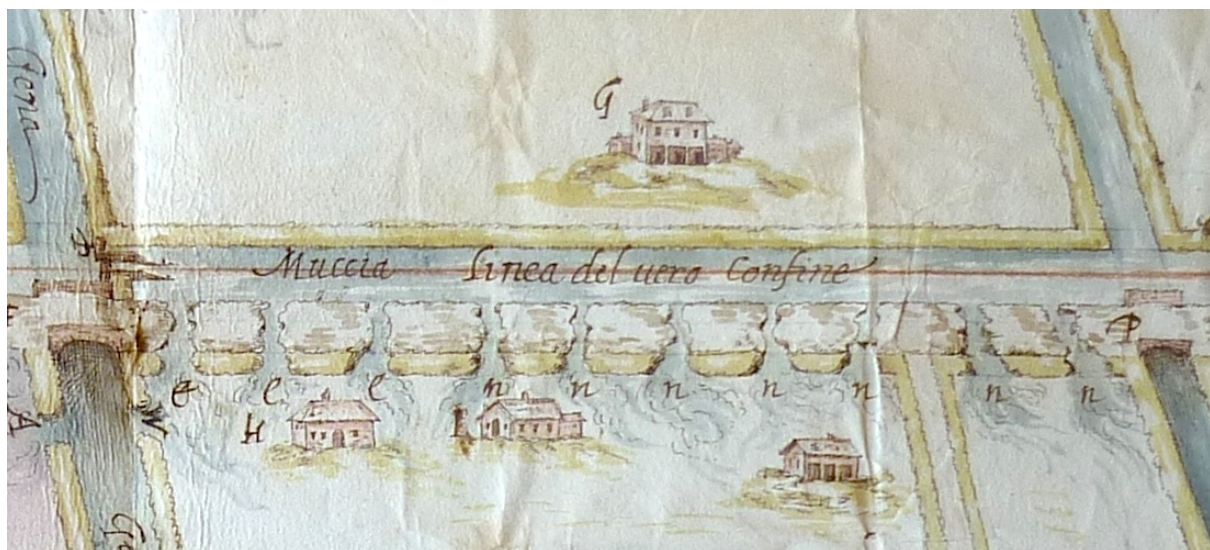 G
Muccia linea del uero Confine
P
e e e n n n n n n n
H I